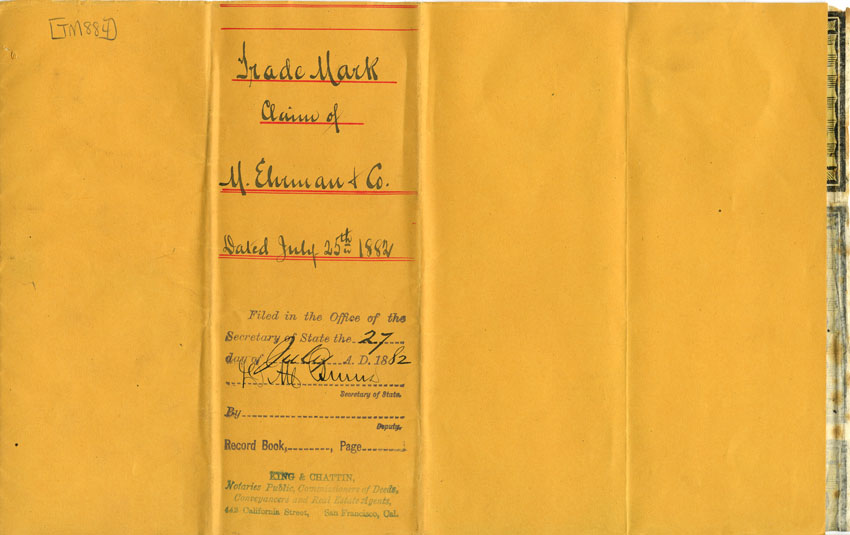 [TM884]
Trade Mark
Claim of
M. Ehrman & Co.
Dated July 25th 1882
Filed in the Office of the
Secretary of State the 27
day of July A. D. 1882
Burns
Secretary of State.
By
Deputy.
Record Book, , Page
KING & CHATTIN,
Notaries Public, Commissioners of Deeds,
Conveyancers and Real Estate Agents,
California Street, San Francisco, Cal.